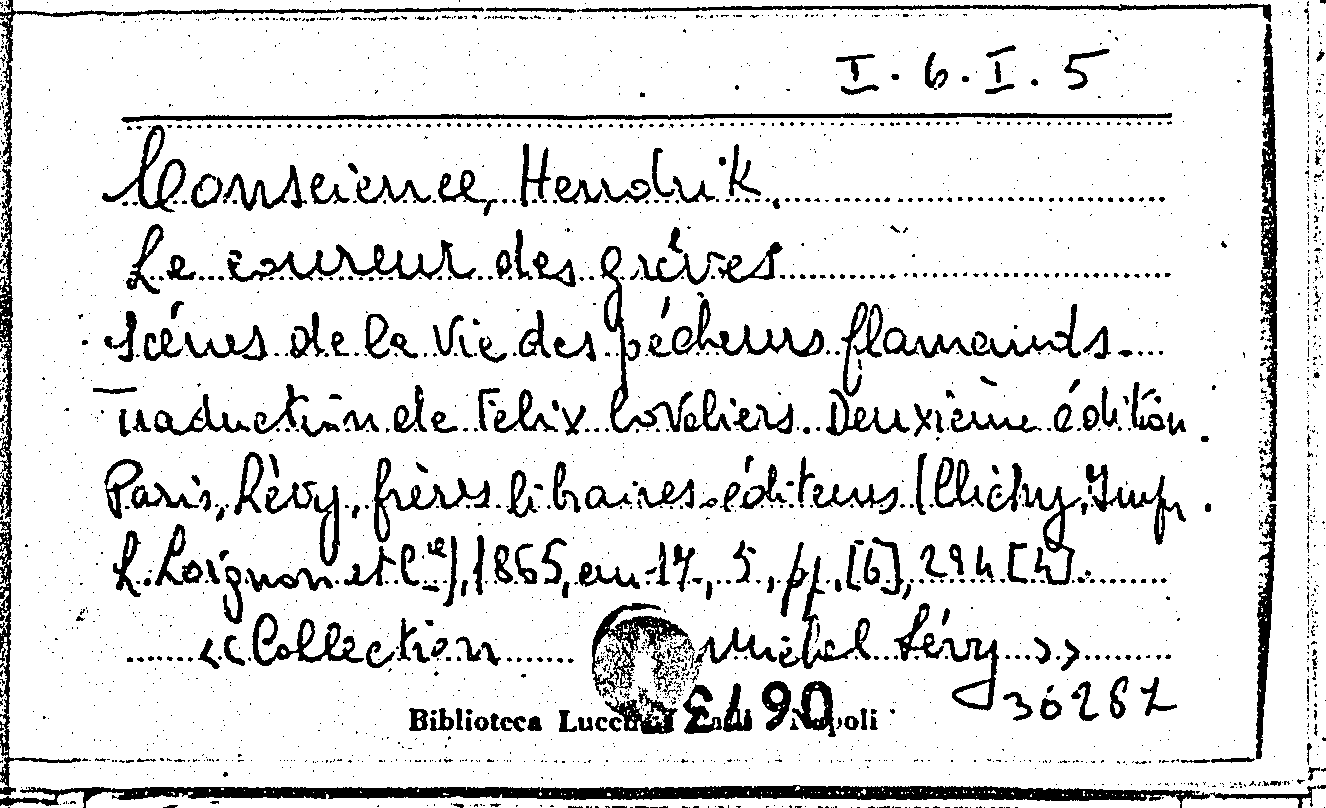 I. 6. I. 5
Conscience, Hendrik.
Le coureur des grèves
Scénes de la vie des pécheurs flamands.
Traduction de Felix Coveliers. Deuxième édition.
Paris, Lévy, frères libraires-éditeurs (Clichy, Imp.
L. Loignon et C.ie), 1865, cm. 17,5, pp. [6], 294 [4].
«Collection Michel Lévy»
36287
Biblioteca Napoli